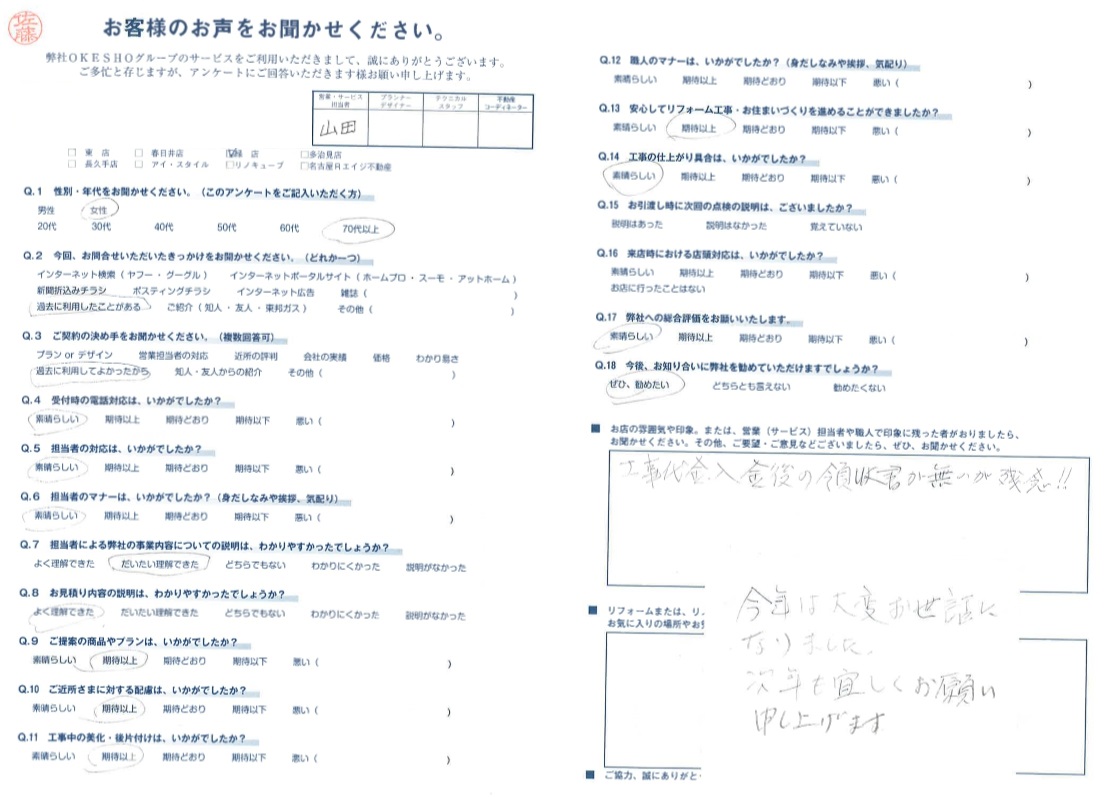 佐藤
お客様のお声をお聞かせください。
弊社OKESHOグループのサービスをご利用いただきまして、誠にありがとうございます。
ご多忙と存じますが、アンケートにご回答いただきます様お願い申し上げます。
営業・サービス担当者 プランナーデザイナー テクニカルスタッフ 不動産コーディネーター
山田
□ 東 店 □ 春日井店 ☑ 店 □多治見店
□ 長久手店 □ アイ・スタイル □リノキューブ □名古屋日エイジ不動産
Q.1 性別・年代をお聞かせください。（このアンケートをご記入いただく方）
男性 女性
20代 30代 40代 50代 60代 70代以上
Q.2 今回、お問合せいただいたきっかけをお聞かせください。（どれか一つ）
インターネット検索（ ヤフー・グーグル ） インターネットポータルサイト（ ホームプロ・スーモ・アットホーム ）
新聞折込みチラシ ポスティングチラシ インターネット広告 雑誌（ ）
過去に利用したことがある ご紹介（ 知人・友人・東邦ガス ） その他（ ）
Q.3 ご契約の決め手をお聞かせください。（複数回答可）
プラン or デザイン 営業担当者の対応 近所の評判 会社の実績 価格 わかり易さ
過去に利用してよかったから 知人・友人からの紹介 その他（ ）
Q.4 受付時の電話対応は、いかがでしたか？
素晴らしい 期待以上 期待どおり 期待以下 悪い（ ）
Q.5 担当者の対応は、いかがでしたか？
素晴らしい 期待以上 期待どおり 期待以下 悪い（ ）
Q.6 担当者のマナーは、いかがでしたか？（身だしなみや挨拶、気配り）
素晴らしい 期待以上 期待どおり 期待以下 悪い（ ）
Q.7 担当者による弊社の事業内容についての説明は、わかりやすかったでしょうか？
よく理解できた だいたい理解できた どちらでもない わかりにくかった 説明がなかった
Q.8 お見積り内容の説明は、わかりやすかったでしょうか？
よく理解できた だいたい理解できた どちらでもない わかりにくかった 説明がなかった
Q.9 ご提案の商品やプランは、いかがでしたか？
素晴らしい 期待以上 期待どおり 期待以下 悪い（ ）
Q.10 ご近所さまに対する配慮は、いかがでしたか？
素晴らしい 期待以上 期待どおり 期待以下 悪い（ ）
Q.11 工事中の美化・後片付けは、いかがでしたか？
素晴らしい 期待以上 期待どおり 期待以下 悪い（ ）
Q.12 職人のマナーは、いかがでしたか？（身だしなみや挨拶、気配り）
素晴らしい 期待以上 期待どおり 期待以下 悪い（ ）
Q.13 安心してリフォーム工事・お住まいづくりを進めることができましたか？
素晴らしい 期待以上 期待どおり 期待以下 悪い（ ）
Q.14 工事の仕上がり具合は、いかがでしたか？
素晴らしい 期待以上 期待どおり 期待以下 悪い（ ）
Q.15 お引渡し時に次回の点検の説明は、ございましたか？
説明はあった 説明はなかった 覚えていない
Q.16 来店時における店頭対応は、いかがでしたか？
素晴らしい 期待以上 期待どおり 期待以下 悪い（ ）
お店に行ったことはない
Q.17 弊社への総合評価をお願いいたします。
素晴らしい 期待以上 期待どおり 期待以下 悪い（ ）
Q.18 今後、お知り合いに弊社を勧めていただけますでしょうか？
ぜひ、勧めたい どちらとも言えない 勧めたくない
■ お店の雰囲気や印象。または、営業（サービス）担当者や職人で印象に残った者がおりましたら、
お聞かせください。その他、ご要望・ご意見などございましたら、ぜひ、お聞かせください。
工事代金入金後の領収書が無いが残念!!
■ リフォームまたは、リ
お気に入りの場所やお
今年は大変お世話に
なりました。
次年も宜しくお願い
申し上げます
■ ご協力、誠にありがと